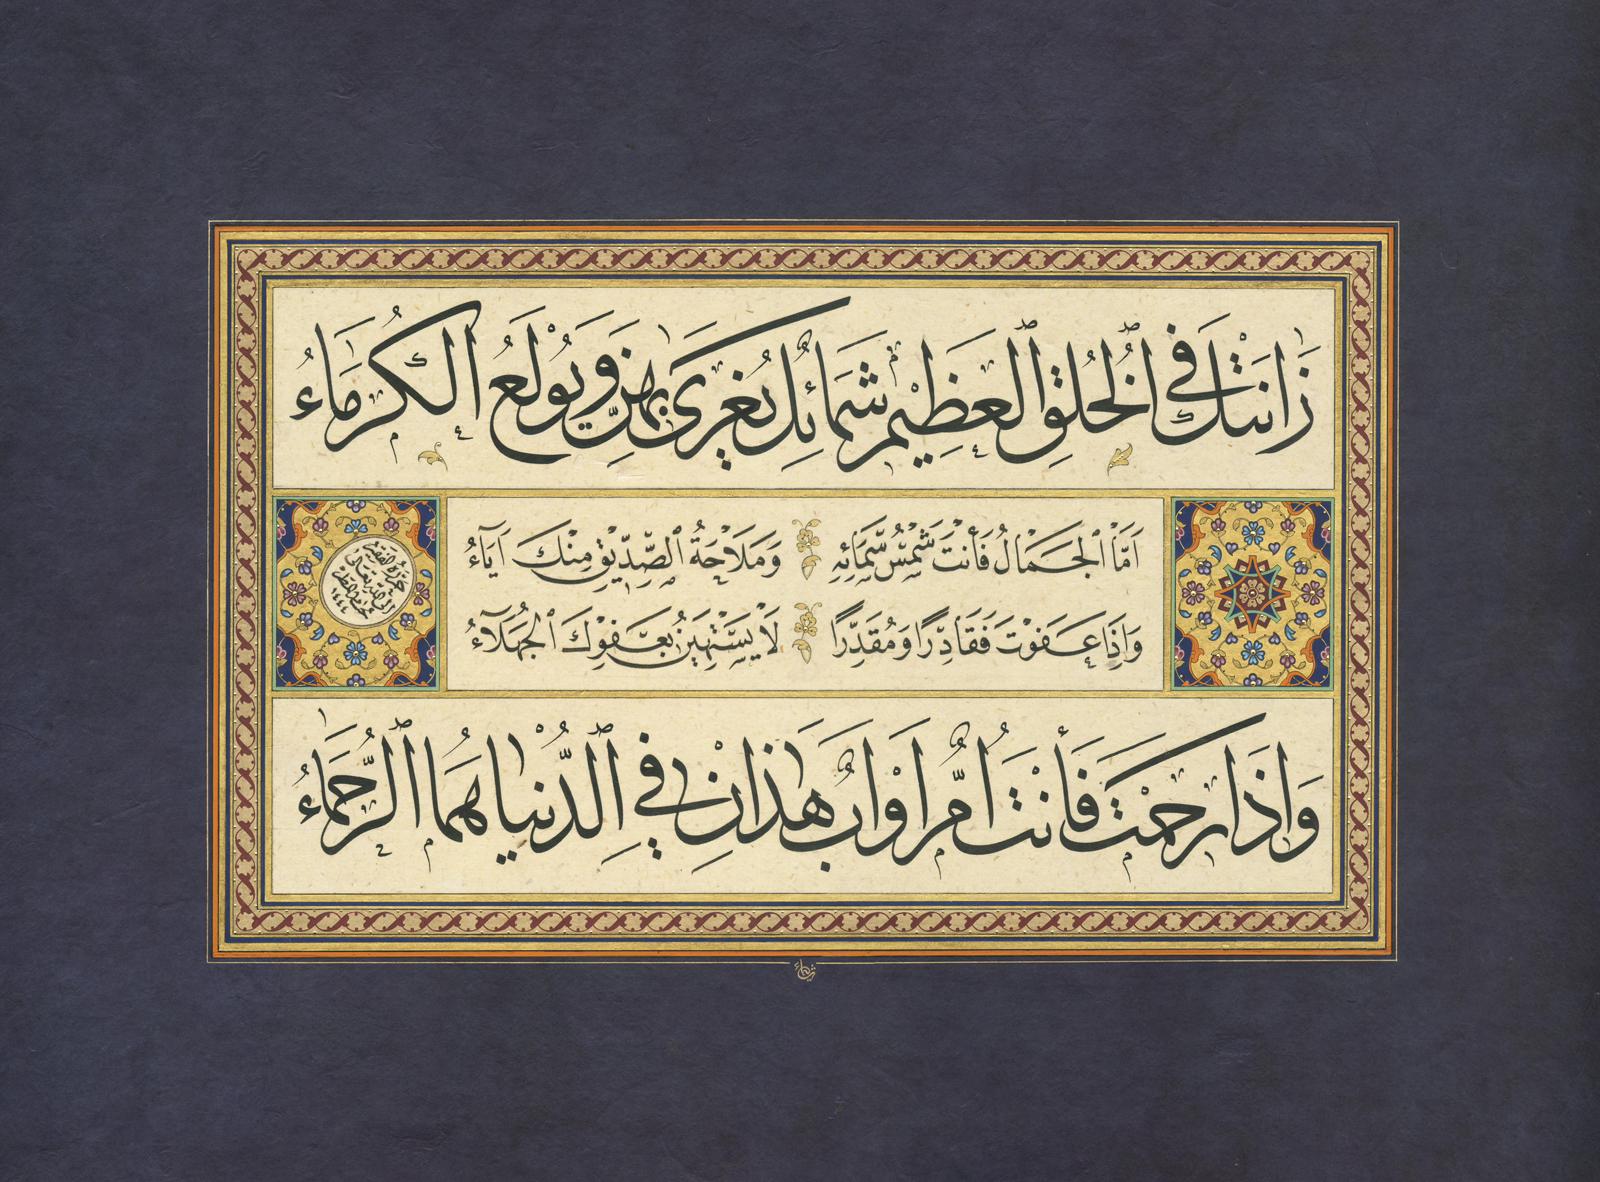 زَانَتْكَ فِي ٱلْخُلُقِ ٱلْعَظِيمِ شَمَائِلٌ يُغْرَى بِهِنَّ وَيُولَعُ ٱلْكُرَمَاءُ
أَمَّا ٱلْجَمَالُ فَأَنْتَ شَمْسُ سَمَائِهِ وَمَلَاحَةُ ٱلصِّدِّيقِ مِنْكَ أَيَاءُ
وَإِذَا عَفَوْتَ فَقَادِرًا وَمُقَدَّرًا لَا يَسْتَهِينُ بِعَفْوِكَ ٱلْجُهَلَاءُ
وَإِذَا رَحِمْتَ فَأَنْتَ أُمٌّ أَوْ أَبٌ هَٰذَانِ فِي ٱلدُّنْيَا هُمَا ٱلرُّحَمَاءُ
حرره الفقير
١٤٤٤